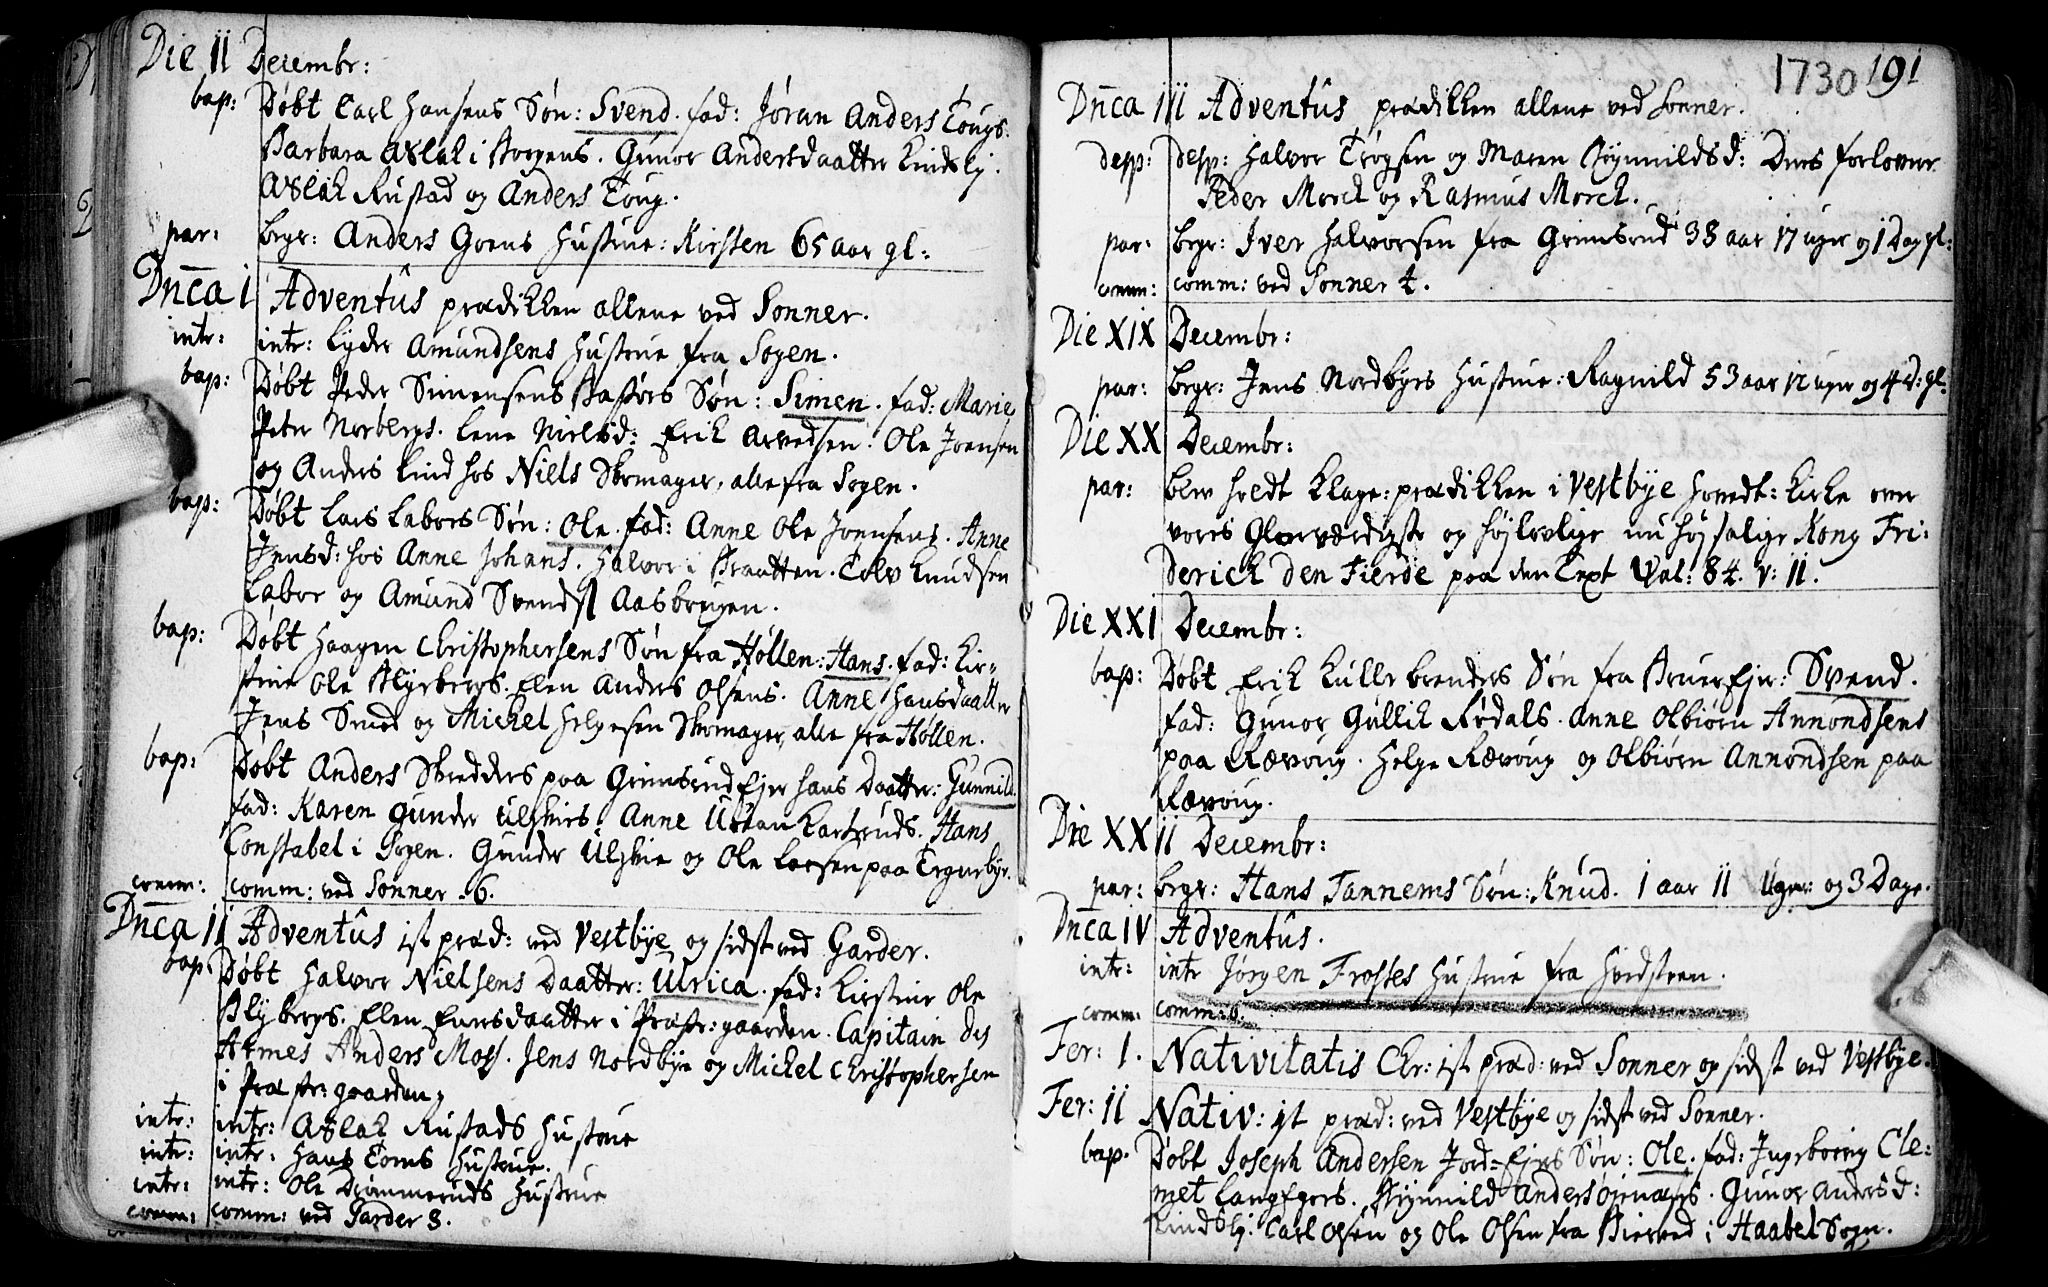 Die II Decembr:
bap: Døbt Carl Hansens Søn: Svend. fad: Jøran Anders Tougs.
Barbara Aslak i Skogens. Gunor Andersdaatter Lindsly.
Aslak Rustad og Anders Toug.
par: begr: Anders Goens Hustrue: Kirsten 65 aar gl:
Dnca I Adventûs prædikken allene ved Sonner.
intr: intr: Lyder Amundsens Hustrue fra Sogen.
bap: Døbt Peder Simensens Søn: Simen. fad: Marie
Peter Norbergs. Lene Nielsd: Erik Arvedsen. Ole Joensen
og Anders Lind hos Niells Skomager, alle fra Sogen.
bap: Døbt Lars Labors Søn: Ole. fad: Anne Ole Joensens. Anne
Jensd: hos Anne Johans. Halvor i Braatten. Tolv Knudsen
Labor og Amund Svends Aasbreyen.
bap: Døbt Haagen Christophersens Søn fra Høllen: Hans. fad: Kir-
stine Ole Blybergs. Elen Anders Olsens. Anne Hansdaatter
Jens Smed og Michel Helgesen Skomager, alle fra Høllen.
bap: Døbt Anders Skredders paa Grimsrud Ejer hans Daatter: Gunnild.
fad: Karen Gunder Ulskies. Anne Urian Karsruds. Hans
Constabel i Sogen. Gunder Ulskie og Ole Larsen paa Tegnebye.
comm: comm: ved Sonner . 6.
Dnca II Adventûs 1st præd: ved Vestbye og sidst ved Garder.
bap. Døbt Halvor Nielsens Daatter: Ulrica. fad: Kirstine Ole
Blybergs. Elen Enersdaatter i Præste:gaarden. Capitain des
Armes Anders Moss. Jens Nordbye og Michel Christophersen
i Præste:gaarden.
intr: intr: Aslak Rustads Hustrue
intr: intr: Hans Toms Hustrue.
intr: intr: Ole Drømmeruds Hustrue
comm: comm: ved Garder 8.
1730 191
Dnca III Adventûs prædikken allene ved Sonner.
desp: desp: Halvor Trogsen og Maren Bøynnildsd: Deres forlovere
Peder Morck og Rasmus Morck.
par: begr: Iver Halvorsen fra Grimsrud 38 aar 17 uger og 1 Dag gl:
comm: comm: ved Sonner 4.
Die XIX Decembr:
par: begr: Jens Nordbyes Hustrue: Ragnild 53 aar 12 uger og 4 D: gl:
Die XX Decembr:
par: blev holdt Klage:prædikken i Vestbye Hovedt:Kirke over
vores Glorværdigste og høylovlige nu høysalige Kong Fri:
derich den Fierde paa den Text Psal: 84. v: 11.
Die XXI Decembr:
bap: Døbt Erik Kullebrenders Søn fra Bruer Ejer: Svend.
fad: Gunor Gullik Aasdals. Anne Olbiørn Annondsens
paa Rævoug. Helge Rævoug og Olbiørn Annondsen paa
Rævoug.
Die XXII Decembr:
par: begr: Hans Tannems Søn: Knud. 1 aar 11 Uger: og 3 Dage.
Dnca IV Adventûs.
intr: intr Jørgen Frosses Hustrue fra Hvidsteen.
comm. comm: 6.
Fer: I. Nativitatis Chr: 1st præd: ved Sonner og sidst ved Vestbye.
Fer: II Nativ: 1st præd: ved Vestbye og sidst ved Sonner.
bap. Døbt Joseph Andersen Jord-Ejers Søn: Ole. fad: Ingeboerig Cle:
met Langegers. Bøynnild Anders . Gunor Andersd:
Lindsly. Carl Olsen og Ole Olsen fra Bierved i Haabel Sogn.